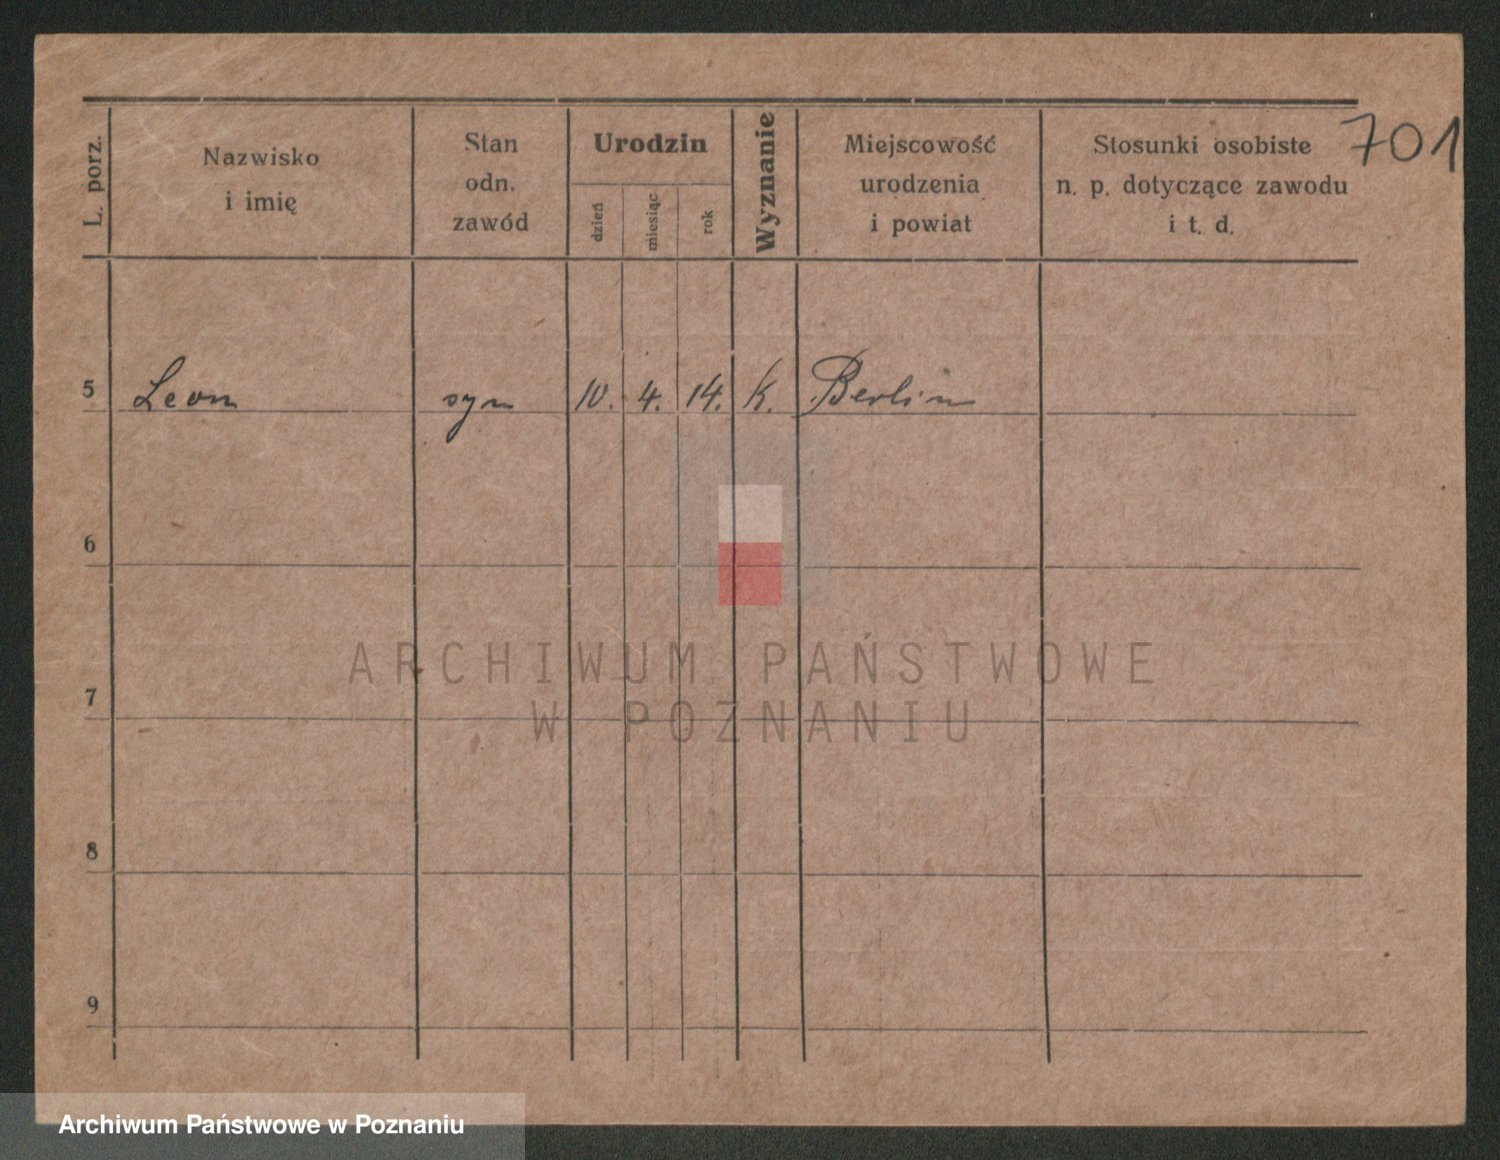 701
L. porz.
Nazwisko
i imię
Stan
odn.
zawód
Urodzin
dzień
miesiąc
rok
Wyznanie
Miejscowość
urodzenia
i powiat
Stosunki osobiste
n. p. dotyczące zawodu
i t. d.
5 Leon syn 10. 4. 14. k. Berlin
6
7
8
9
ARCHIWUM PAŃSTWOWE
W POZNANIU
Archiwum Państwowe w Poznaniu